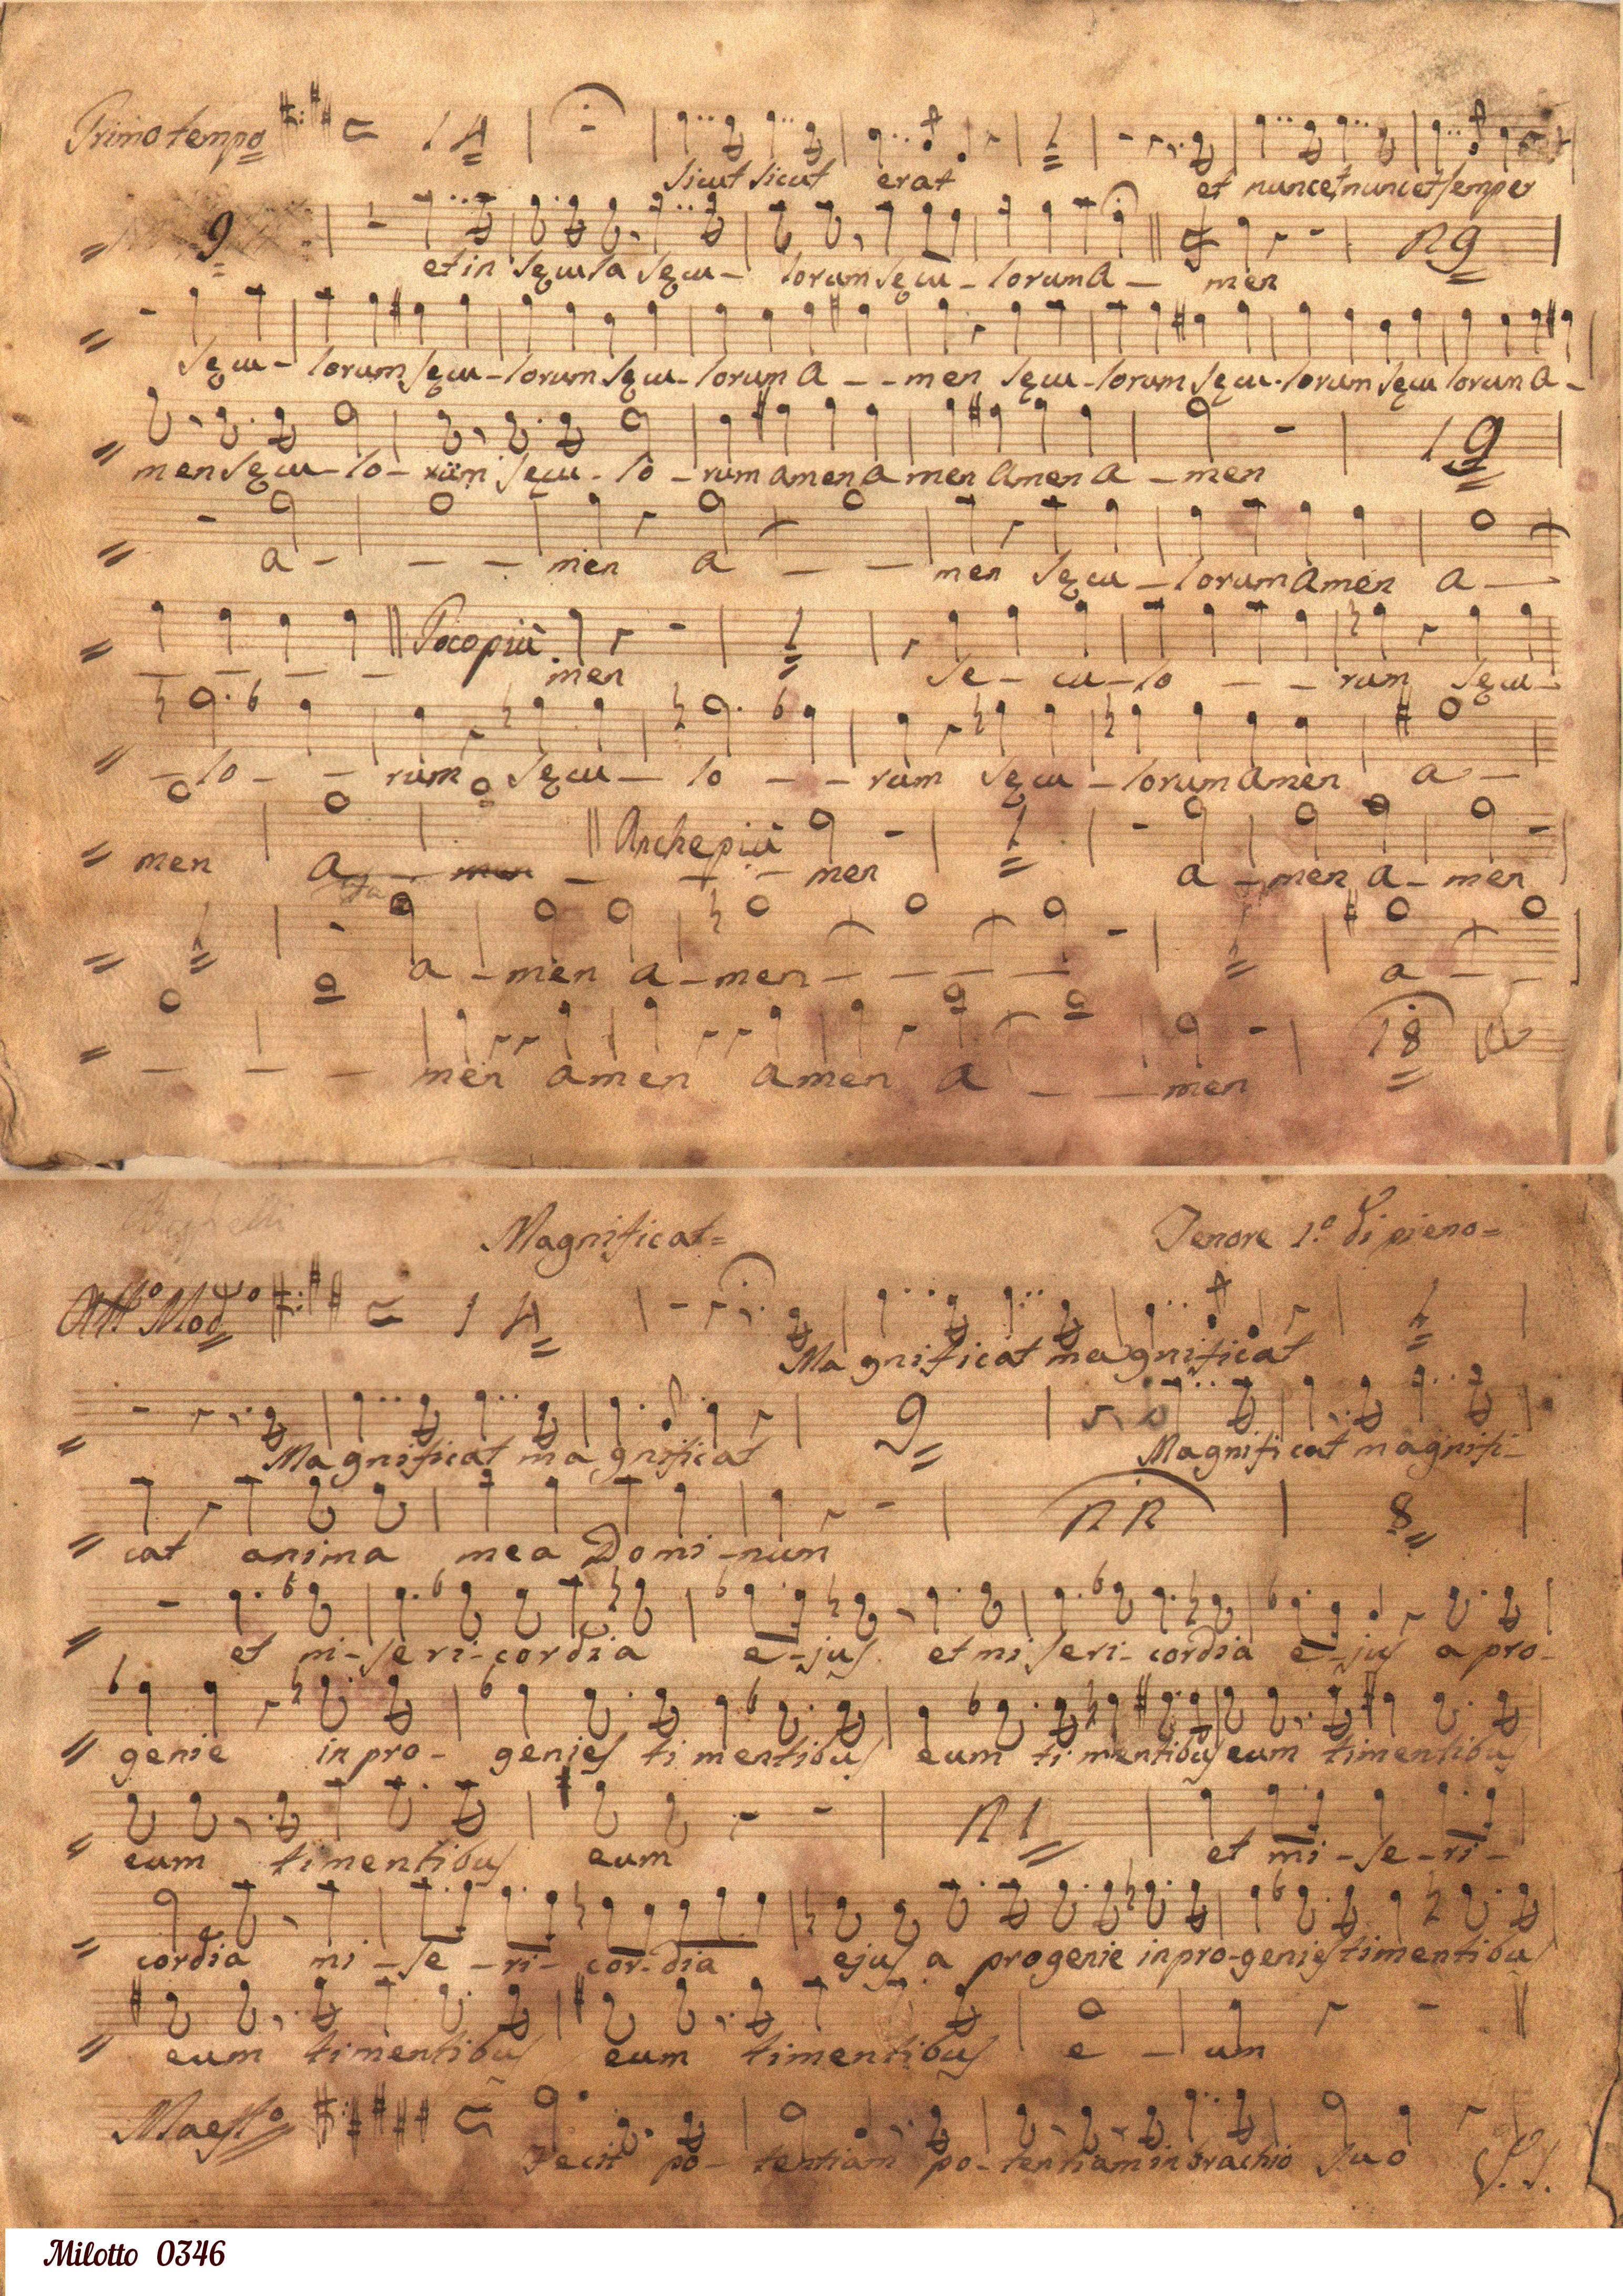 Primo tempo 14
sicut sicut erat et nunc et nunc et semper
9 n9
et in secula secu- lorum secu - lorum A - men
secu - lorum secu - lorum secu - lorum A - - men secu - lorum secu - lorum secu lorum A -
19
men secu - lo - rum secu - lo - rum amen a men Amen a - men
a - - - men a - - men secu - lorum Amen a -
Poco più
- - - - men se - cu - lo - - rum secu -
- lo - - rum secu - lo - - rum secu - lorum Amen a -
Anche più
men A - men - - - men a - men a - men
a - men a - men - - - - a - -
18
- - - men amen amen a - - men
Magnificat= Tenore 1.º di pieno=
All.º Mod.to 14
Magnificat magnificat
9
Magnificat magnificat Magnificat magnifi-
8
cat anima mea Domi-num
et mi-seri-cordia e-jus et miseri-cordia e-jus a pro-
genie in pro- genies timentibus eum timentibus eum timentibus
n1
eum timentibus eum et mi-se-ri-
cordia mi-se-ri-cor-dia ejus a progenie in pro-genies timentibus
eum timentibus eum timentibus e - um
Maest.º
Fecit po- tentiam po- tentiam in brachio suo
Milotto 0346